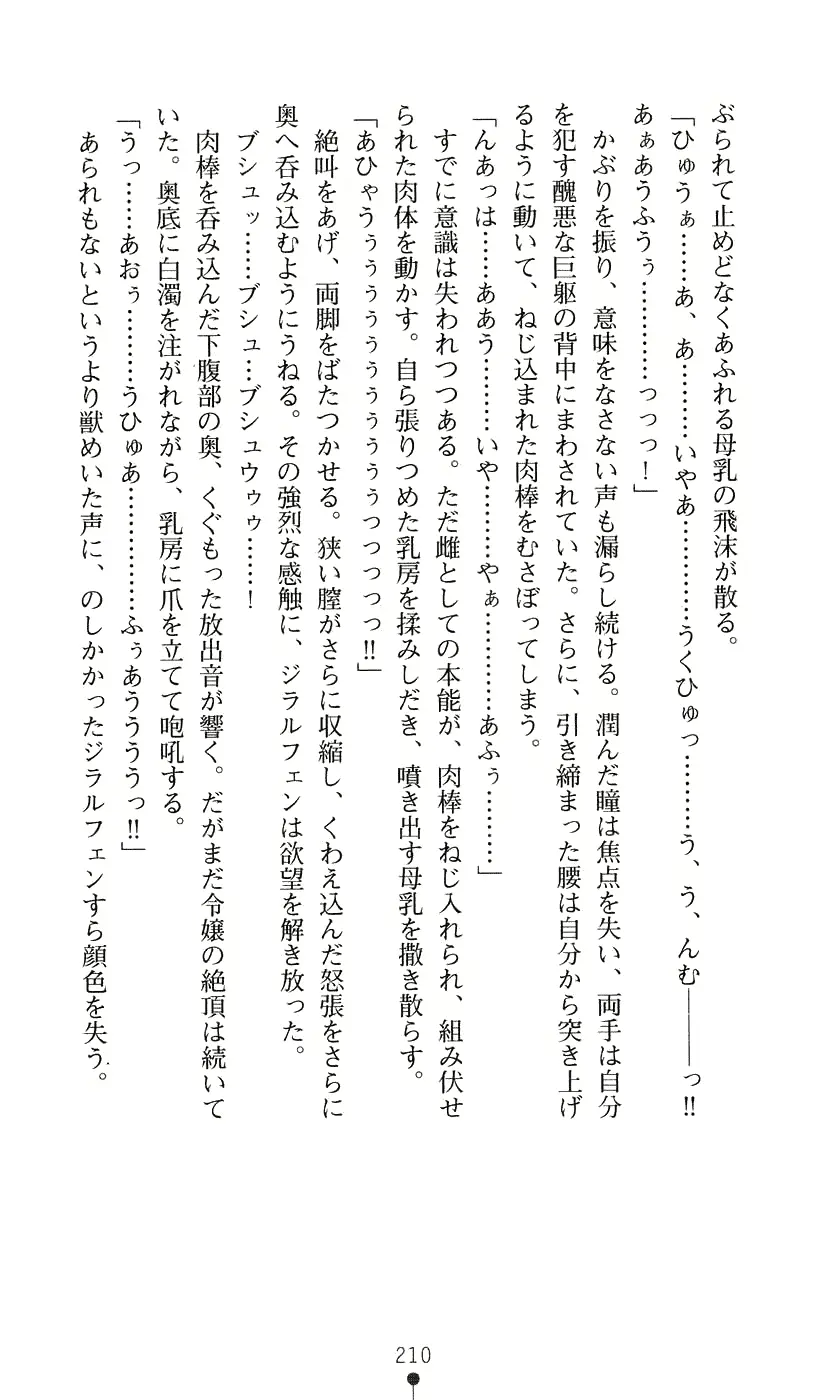 ぶられて止めどなくあふれる母乳の飛沫が散る。
「ひゅうぁ……あ、あ………いやあ…………うくひゅっ………う、う、んむ――っ‼
あぁあうふうぅ…………っっっ！」
かぶりを振り、意味をなさない声も漏らし続ける。潤んだ瞳は焦点を失い、両手は自分
を犯す醜悪な巨躯の背中にまわされていた。さらに、引き締まった腰は自分から突き上げ
るように動いて、ねじ込まれた肉棒をむさぼってしまう。
「んあっは……ああう………いや………やぁ…………あふぅ………」
すでに意識は失われつつある。ただ雌としての本能が、肉棒をねじ入れられ、組み伏せ
られた肉体を動かす。自ら張りつめた乳房を揉みしだき、噴き出す母乳を撒き散らす。
「あひゃうぅぅぅぅぅぅぅぅぅぅっっっっっ‼」
絶叫をあげ、両脚をばたつかせる。狭い膣がさらに収縮し、くわえ込んだ怒張をさらに
奥へ呑み込むようにうねる。その強烈な感触に、ジラルフェンは欲望を解き放った。
ブシュッ……ブシュ…ブシュウゥゥ……！
肉棒を呑み込んだ下腹部の奥、くぐもった放出音が響く。だがまだ令嬢の絶頂は続いて
いた。奥底に白濁を注がれながら、乳房に爪を立てて咆吼する。
「うっ……あおぅ………うひゅあ……………ふぅあうううっ‼」
あられもないというより獣めいた声に、のしかかったジラルフェンすら顔色を失う。
210